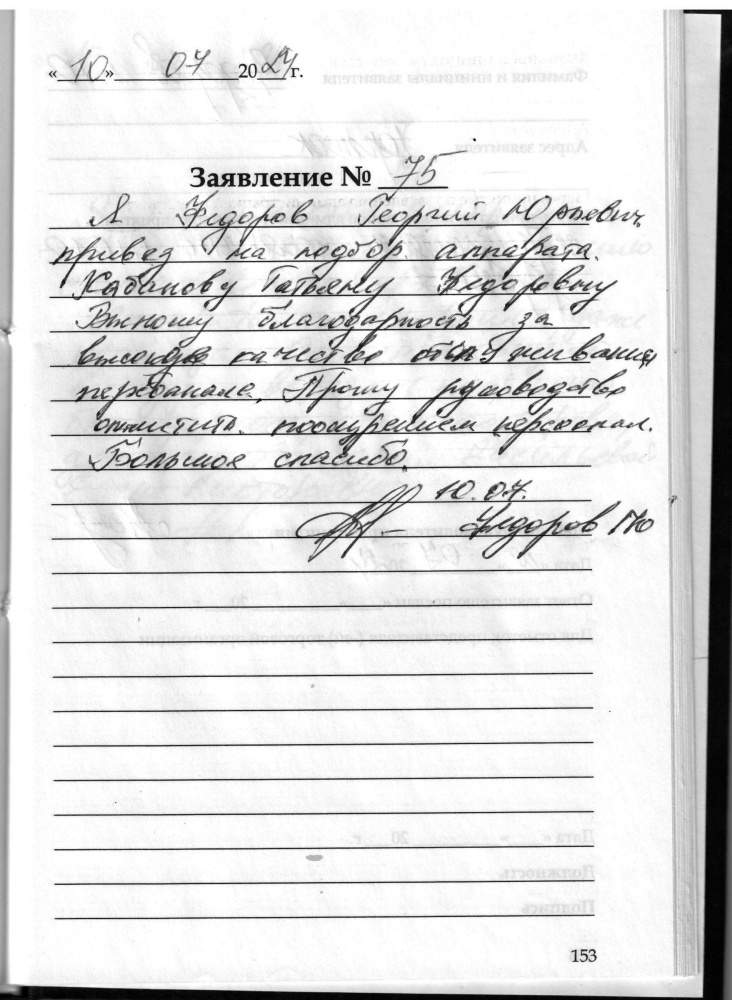 «10» 07 2024 г.
Заявление № 75
Я Федоров Георгий Юрьевич
привез на подбор аппарата
Кабанову Татьяну Федоровну
Выношу благодарность за
высокое качество обслуживания
персонала. Прошу руководство
отметить поощрением персонал.
Большое спасибо.
10.07.
Федоров ГЮ
153